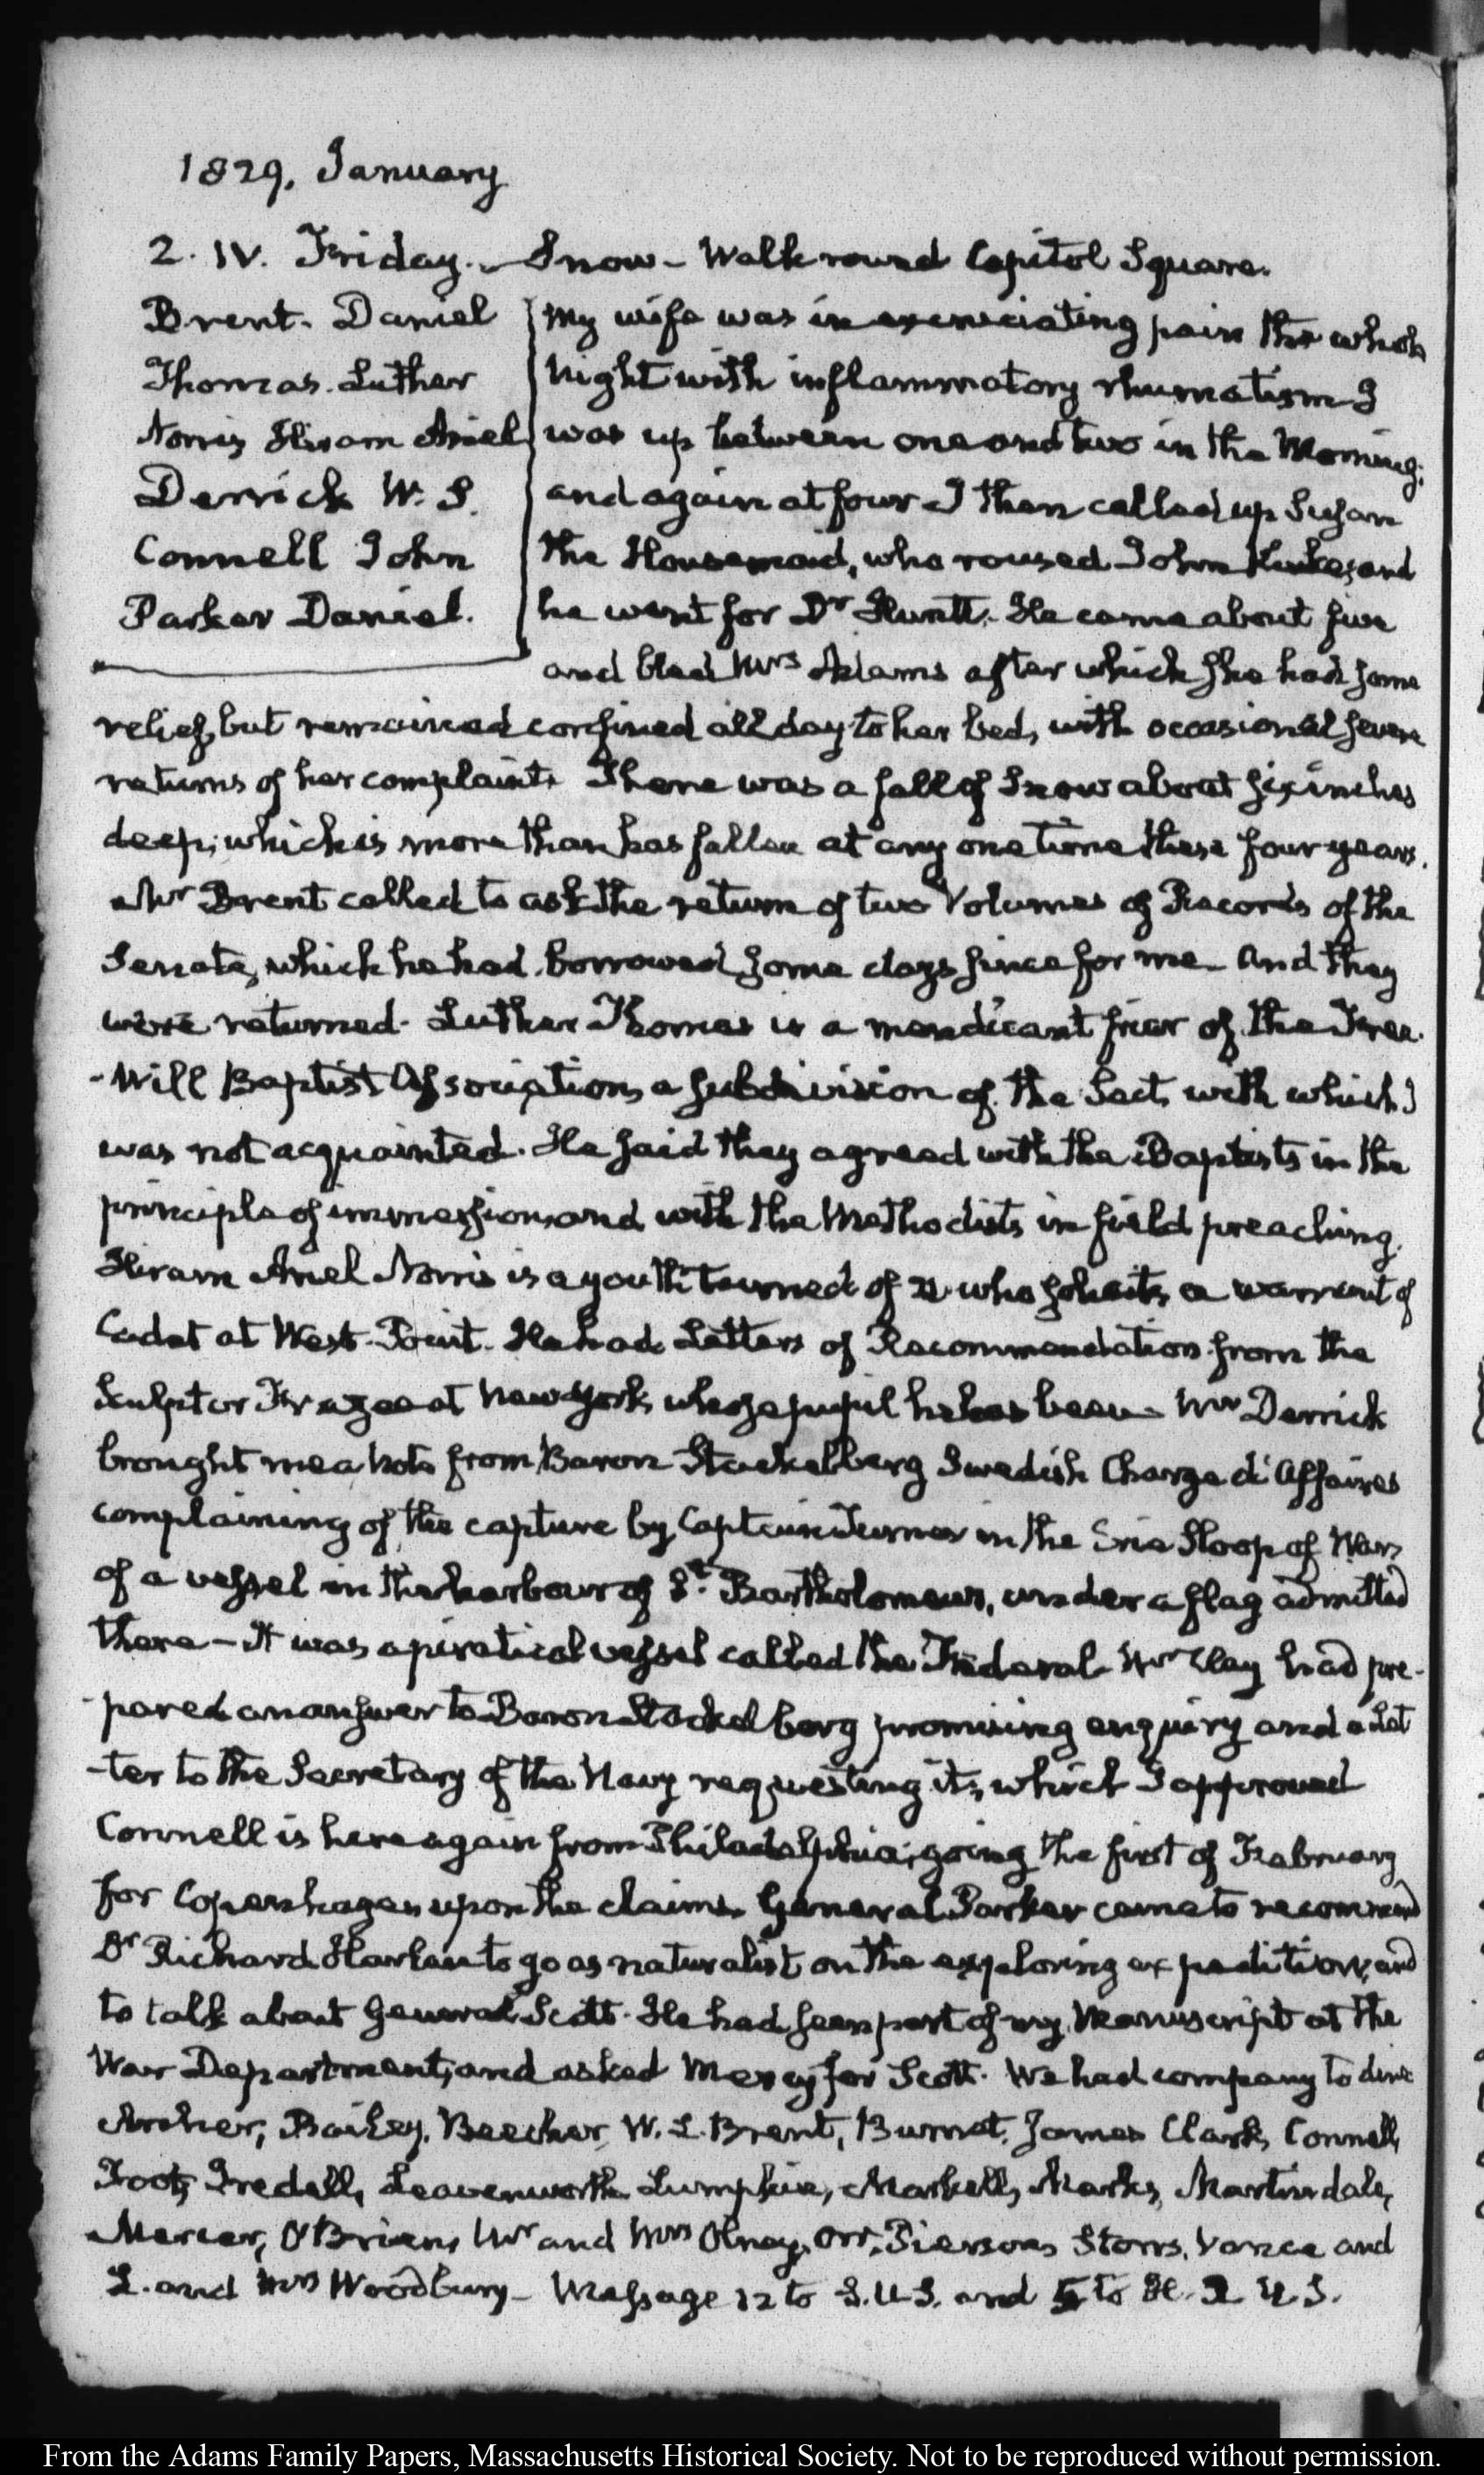 1829. January
2. IV. Friday. Snow - Walk round Capitol Square.
Brent. Daniel
Thomas. Luther
Norris Hiram Ariel
Derrick W. S.
Connell John
Parker Daniel.
My wife was in excruciating pain the whole
Night with inflammatory rhumatism I
was up between one and two in the Morning;
and again at four I then called up Susan
the Housemaid, who roused John Kirke, and
he went for Dr Huntt. He came about five
and bled Mrs Adams after which she had some
relief, but remained confined all day to her bed, with occasional severe
returns of her complaint. There was a fall of Snow about six inches
deep; which is more than has fallen at any one time these four years.
Mr Brent called to ask the return of two Volumes of Records of the
Senate, which he had borrowed some days since for me - And they
were returned. Luther Thomas is a mendicant friar of the Free-
-Will Baptist Association, a subdivision of the Sect, with which I
was not acquainted. He said they agreed with the Baptists in the
principle of immersion, and with the Methodists in field preaching.
Hiram Ariel Norris is a youth turned of 21 who solicits a warrant of
Cadet at West-Point. He had Letters of Recommendation from the
Sculptor Frazee at New York, whose pupil he has been - Mr Derrick
brought me a Note from Baron Stackelberg Swedish Charge d'Affaires
complaining of the capture by Captain Turner in the Erie Sloop of War,
of a vessel in the harbour of St. Bartholomews, under a flag admitted
there - It was a piratical vessel called the Federal - Mr Clay had pre-
-pared an answer to Baron Stackelberg promising enquiry and a Let
-ter to the Secretary of the Navy requesting it, which I approved
Connell is here again from Philadelphia; going the first of February
for Copenhagen upon the claims. General Parker came to recommend
Dr Richard Harlan to go as naturalist on the exploring expedition, and
to talk about General Scott. He had seen part of my Manuscript at the
War Department, and asked Mercy for Scott. We had company to dine
Archer, Bailey, Beecher, W. L. Brent, Burnet, James Clark, Connell,
Foot, Iredell, Leavenworth Lumpkin, Markell, Marks, Martindale,
Mercer, O'Brien, Mr and Mrs Olney, Orr, Pierson, Storrs, Vance and
L. and Mrs Woodbury - Message 12 to S.U.S. and 5 to H. R U.S.
From the Adams Family Papers, Massachusetts Historical Society. Not to be reproduced without permission.